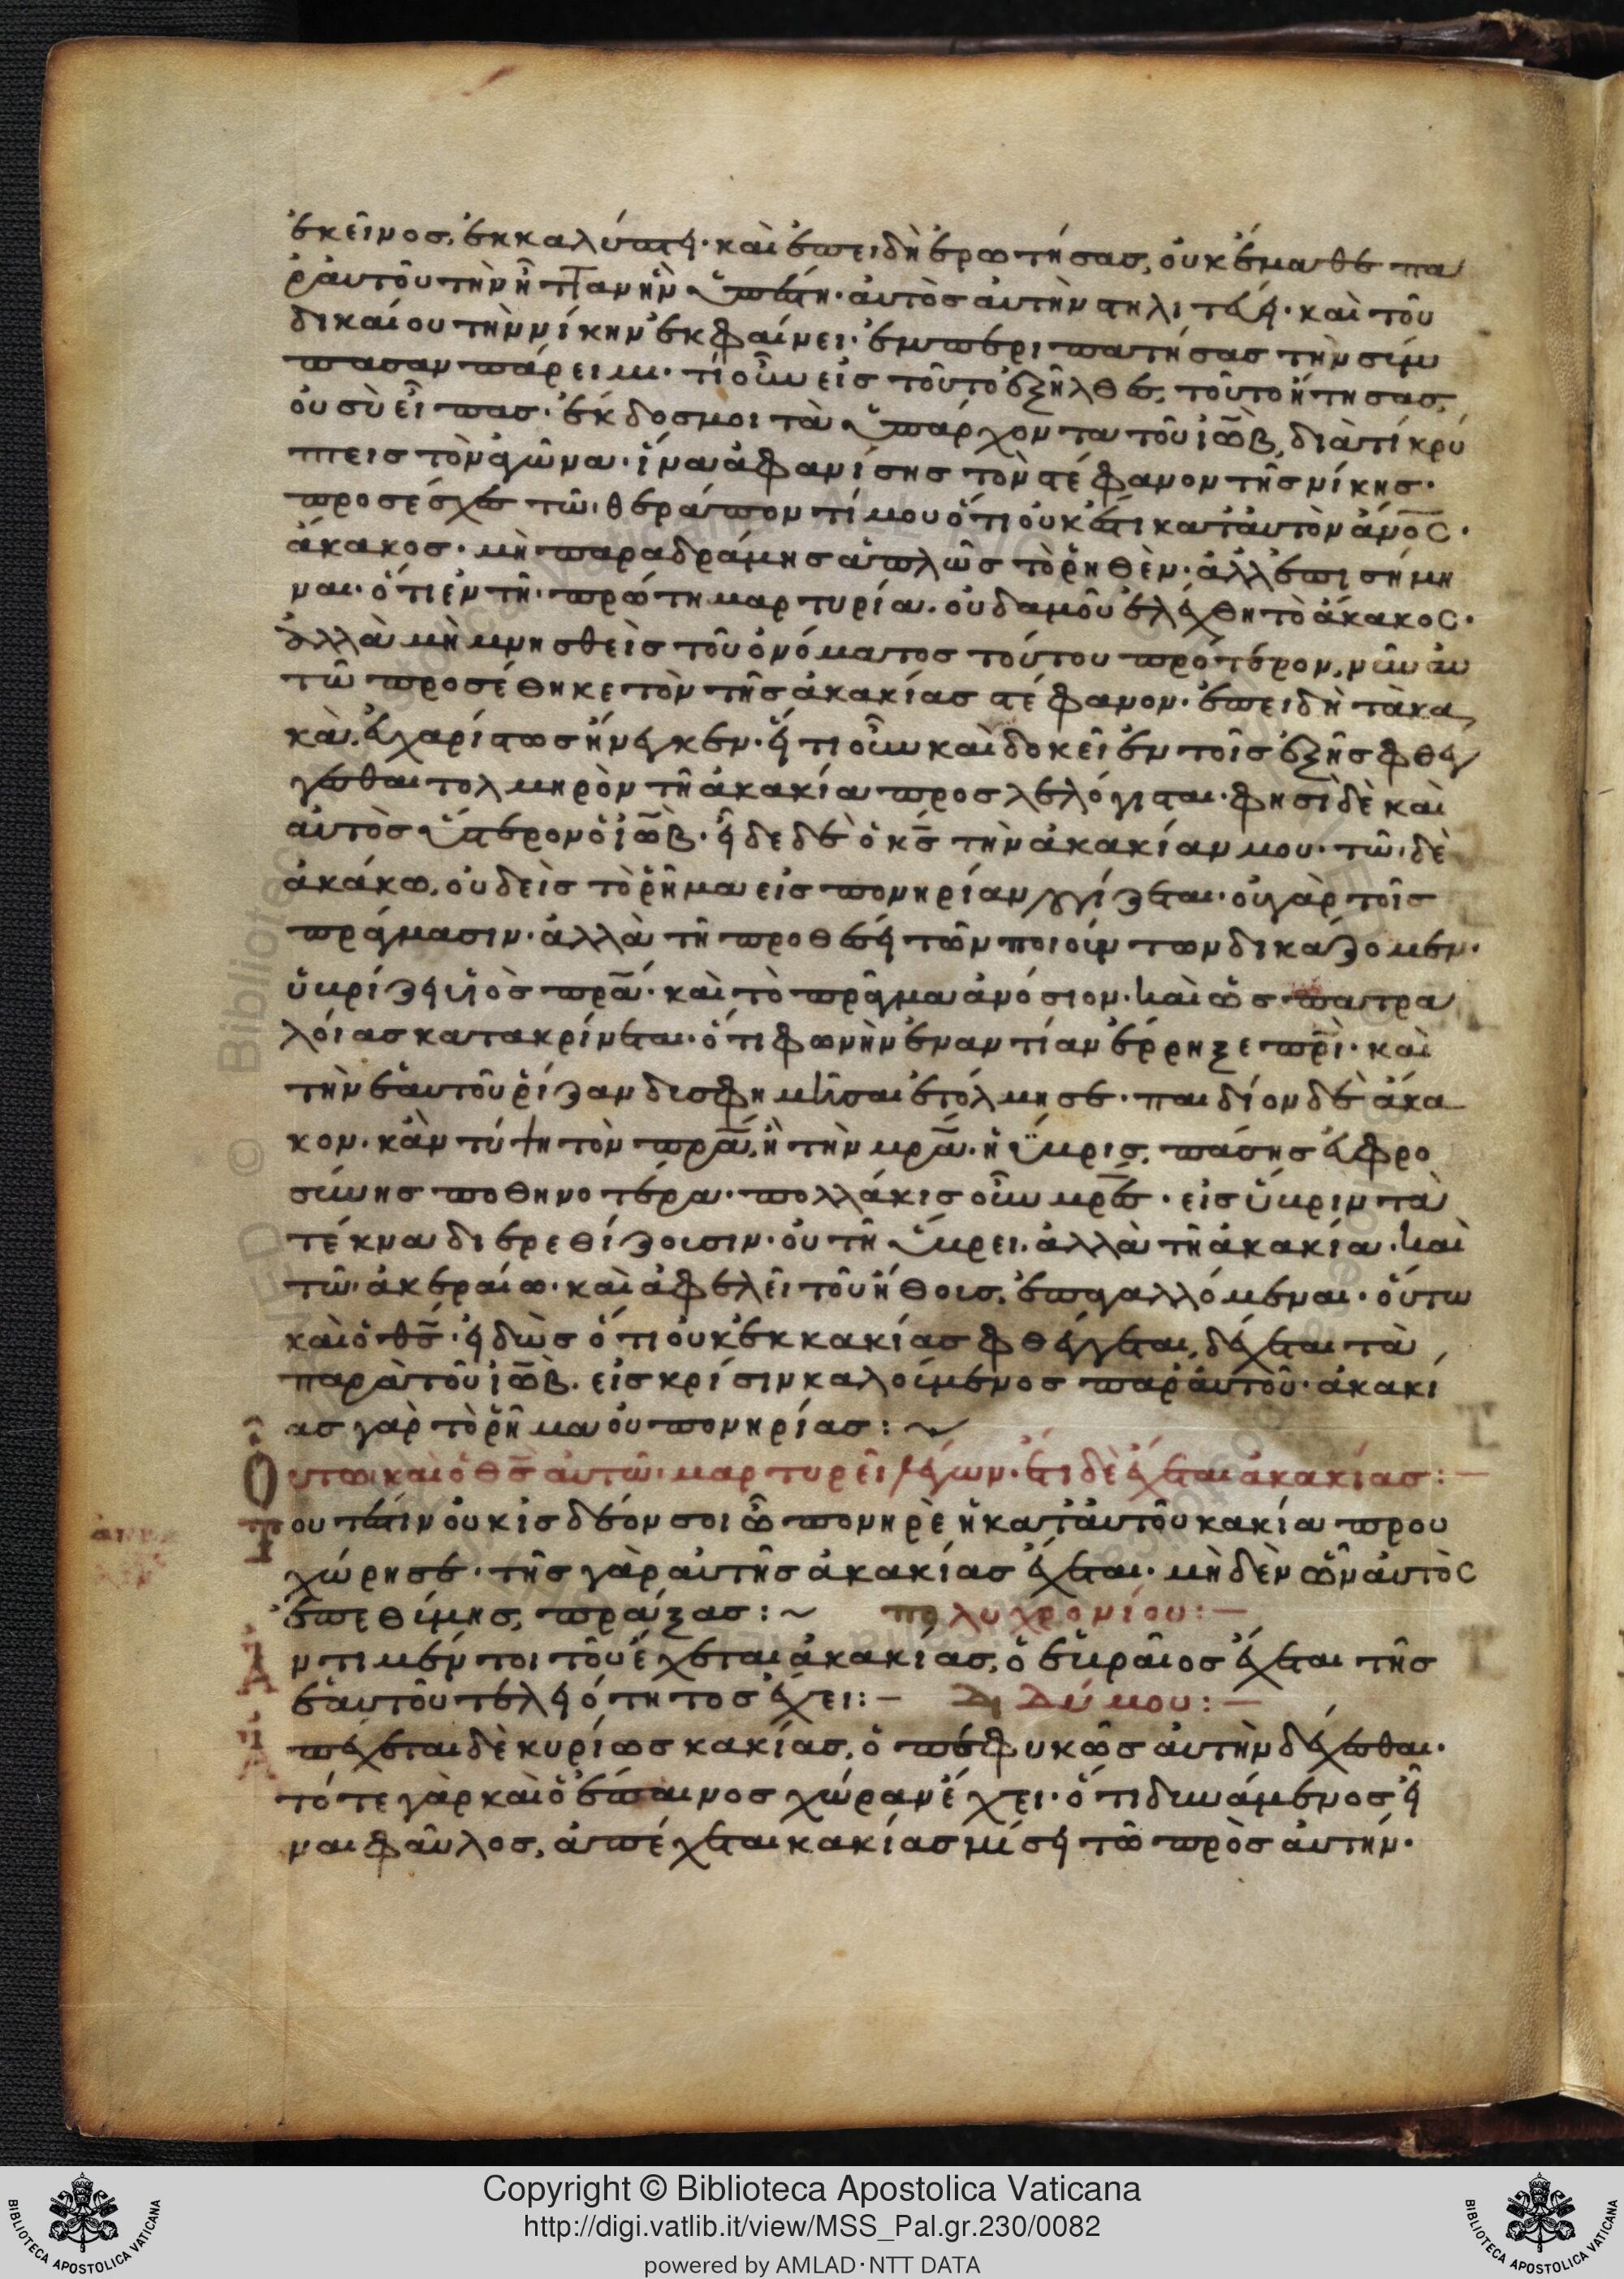 ἐκεῖνος, ἐκκαλύπτει· καὶ ἐπειδὴ ἐρωτήσας, οὐκ ἔμαθε πα
ρ' αὐτοῦ τὴν ἧτταν ἣν ὑπέστη· αὐτὸς αὐτὴν στηλιτεύει· καὶ τοῦ
δικαίου τὴν νίκην ἐκφαίνει· ἐμπεριπατήσας τὴν σύμ
πασαν πάρειμι· τί οὖν εἰς τοῦτο ἐξῆλθες, τοῦτο ᾔτησας,
οὐ σὺ εἶπας· ἔκδοσμοι τὰ ὑπάρχοντα τοῦ ἰὼβ, διὰ τί κρύ
πτεις τὸν ἀγῶνα· ἵνα ἀφανίσης τὸν στέφανον τῆς νίκης·
προσέσχες τῶ θεράποντί μου ὅτι οὐκ ἔστι κατ' αὐτὸν ἀνος·
ἄκακος· μὴ παραδράμης ἁπλῶς τὸ ῥηθὲν· ἀλλ' ἐπισήμη
ναι· ὅτι ἐν τῆ πρώτη μαρτυρία· οὐδαμοῦ ἐλέχθη τὸ ἄκακος·
ἀλλὰ μὴ μνησθεὶς τοῦ ὀνόματος τούτου πρότερον, νῦν αὐ
τῶ προσέθηκε τὸν τῆς ἀκακίας στέφανον· ἐπειδὴ τὰ κα
κὰ, εὐχαρίστως ἤνεγκεν· εἴ τι οὖν καὶ δοκεῖ ἐν τοῖς ἑξῆς φθέγ
γεσθαι τολμηρὸν τῆ ἀκακία προσλελόγισται· φησὶ δὲ καὶ
αὐτὸς ὕστερον ὁ ἰὼβ· εἶδε δὲ ὁ κς τὴν ἀκακίαν μου· τῶ δὲ
ἀκάκω, οὐδεὶς τὸ ῥῆμα εἰς πονηρίαν λογίζεται· οὐ γὰρ τοῖς
πράγμασιν· ἀλλὰ τῆ προθέσει τῶν ποιούντων δικάζομεν·
ὑβρίζει υἱὸς πρα· καὶ τὸ πρᾶγμα ἀνόσιον· καὶ ὡς πατρα
λοίας κατακρίνεται· ὅτι φωνὴν ἐναντίαν ἔρρηξε πρι· καὶ
τὴν ἑαυτοῦ ῥίζαν δυσφημῆσαι ἐτόλμησε· παιδίον δὲ ἄκα
κον· κἂν τύπτη τὸν πρα, ἢ τὴν μρα· ἡ ὕβρις, πάσης εὐφρο
σύνης ποθηνοτέρα· πολλάκις οὖν μρες· εἰς ὕβριν τὰ
τέκνα διερεθίζουσιν· οὐ τῆ ὕβρει, ἀλλὰ τῆ ἀκακία· καὶ
τῶ ἀκεραίω· καὶ ἀφελεῖ τοῦ ἤθους, ἐπαγαλλόμεναι· οὕτω
καὶ ὁ θς· εἰδὼς ὅτι οὐκ ἐκ κακίας φθέγγεται, δέχεται τὰ
παρὰ τοῦ ἰὼβ· εἰς κρίσιν καλούμενος παρ' αὐτοῦ· ἀκακί
ας γὰρ τὸ ῥῆμα οὐ πονηρίας:
Οὕτω καὶ ὁ θς αὐτῶ μαρτυρεῖ λέγων· ἔτι δὲ ἔχεται ἀκακίας:
Τουτέστιν οὐκ εἰς δέον σοι ὦ πονηρὲ ἡ κατ' αὐτοῦ κακία πρου
χώρησε· τῆς γὰρ αὐτῆς ἀκακίας ἔχεται· μηδὲν ὧν αὐτὸς
ἐπεθύμης, πράξας: πολυχρονίου:
Ἀντὶ μέντοι τοῦ ἔχεται ἀκακίας, ὁ ἑβραῖος ἔχεται τῆς
ἑαυτοῦ τελειότητος ἔχει: Διδύμου:
Ἀπέχεται δὲ κυρίως κακίας, ὁ πεφυκὼς αὐτὴν δέχεσθαι·
τότε γὰρ καὶ ὁ ἔπαινος χώραν ἔχει· ὅτι δυνάμενος εἶ
ναι φαῦλος, ἀπέχεται κακίας μίσει τῶ πρὸς αὐτήν·
Copyright © Biblioteca Apostolica Vaticana
http://digi.vatlib.it/view/MSS_Pal.gr.230/0082
powered by AMLAD·NTT DATA
BIBLIOTECA APOSTOLICA VATICANA
BIBLIOTECA APOSTOLICA VATICANA